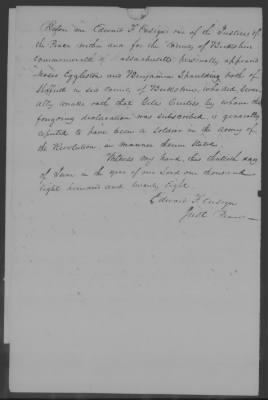 Before me Edward F. Ensign one of the Justices of
the Peace within and for the County of Berkshire
Commonwealth of Massachusetts personally appeared
Moses Eggleston and Benjamin Spaulding both of
Sheffield in sd County of Berkshire, who did sever-
ally make oath that Giles Curtiss by whom the
foregoing declaration was subscribed is generally
reputed to have been a soldier in the army of
the Revolution, in manner therein stated.
Witness my hand, this thirtieth day
of June in the year of our Lord one thousand
Eight hundred and twenty Eight.
Edward F. Ensign
Just Peace